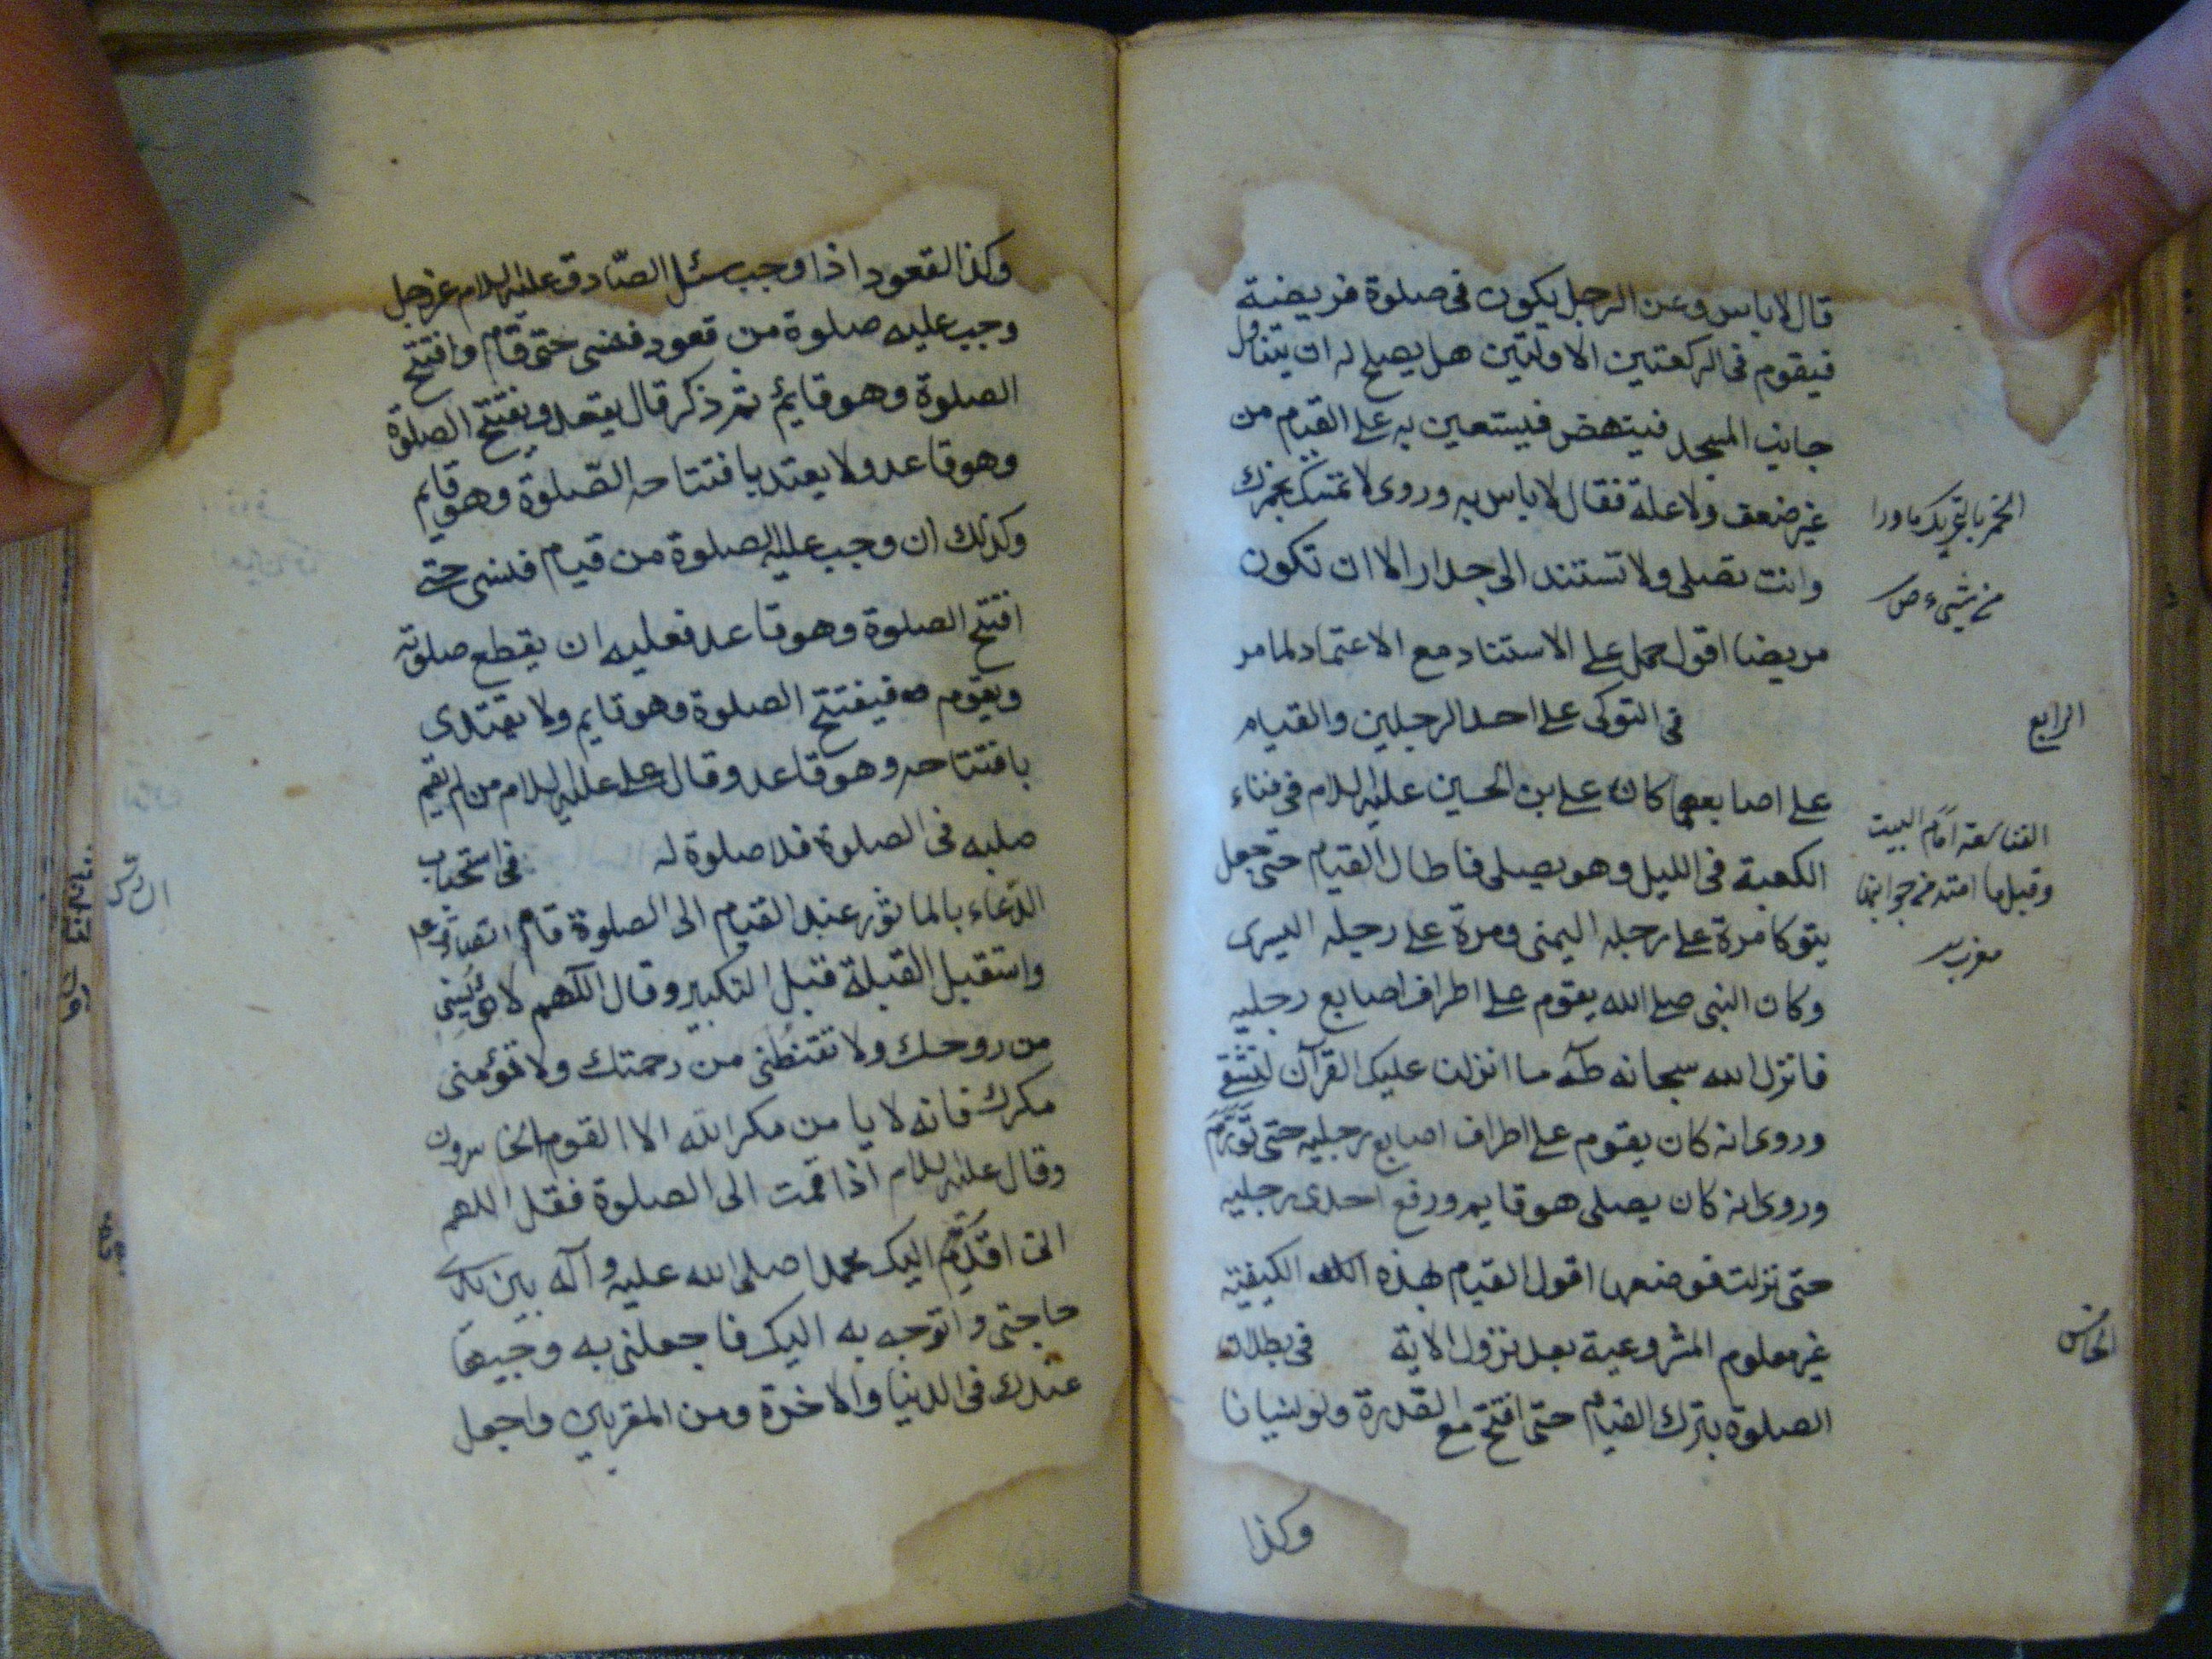 قال لاباس وعن الرجل يكون فى صلوة فريضة
فيقوم فى الركعتين الاولتين هل يصلح له ان يتناول
جانب المسجد فينهض فيستعين به على القيام من
غير ضعف ولا علة فقال لا باس به وروى لا تمسك بخمرك
وانت تصلى ولا تستند الى جدار الا ان تكون
مريضا اقول حمل على الاستناد مع الاعتماد لما مر
فى التوكى على احد الرجلين والقيام
على اصابعهما كان على بن الحسين عليه السلام فى فناء
الكعبة فى الليل وهو يصلى فاطال القيام حتى جعل
يتوكا مرة على رجله اليمنى ومرة على رجله اليسرى
وكان النبى صلى الله يقوم على اطراف اصابع رجليه
فانزل الله سبحانه طه ما انزلنا عليك القرآن لتشقى
وروى انه كان يقوم على اطراف اصابع رجليه حتى تورم
وروى انه كان يصلى هو قايم ورفع احدى رجليه
حتى نزلت فوضعها اقول القيام بهذه الكيفية
غير معلوم المشروعية بعد نزول الاية فى بطلان
الصلوة بترك القيام حتى افتتح مع القدرة ولو نسيانا
وكذا
الخمر بالتحريك ما ورا
من شىء ص
الرابع
الفنا سعة امام البيت
وقيل ما امتد من جوانبها
مغرب
الخامس
وكذا القعود اذا وجب سئل الصّادق عليه السلام عن رجل
وجب عليه صلوة من قعود فنسى حتى قام وافتتح
الصلوة وهو قايم ثم ذكر قال يقعد ويفتتح الصلوة
وهو قاعد ولا يعتد بافتتاحه الصّلوة وهو قايم
وكذلك ان وجب عليه الصلوة من قيام فنسى حتى
افتتح الصلوة وهو قاعد فعليه ان يقطع صلوته
ويقوم فيفتتح الصلوة وهو قايم ولا يقتدى
بافتتاحه وهو قاعد وقال على عليه السلام من لم يقم
صلبه فى الصلوة فلا صلوة له فى استحباب
الدّعاء بالماثور عند القيام الى الصلوة قام الصادق ع
واستقبل القبلة قبل التكبير وقال اللهم لا تؤيسنى
من روحك ولا تقنطنى من رحمتك ولا تؤمنى
مكرك فانه لا يامن مكر الله الا القوم الخاسرون
وقال عليه السلام اذا قمت الى الصلوة فقل اللهم
انى اقدّم اليك محمدا صلى الله عليه وآله بين يدى
حاجتى واتوجه به اليك فاجعلنى به وجيها
عندك فى الدنيا والاخرة ومن المقربين واجعل
السادس